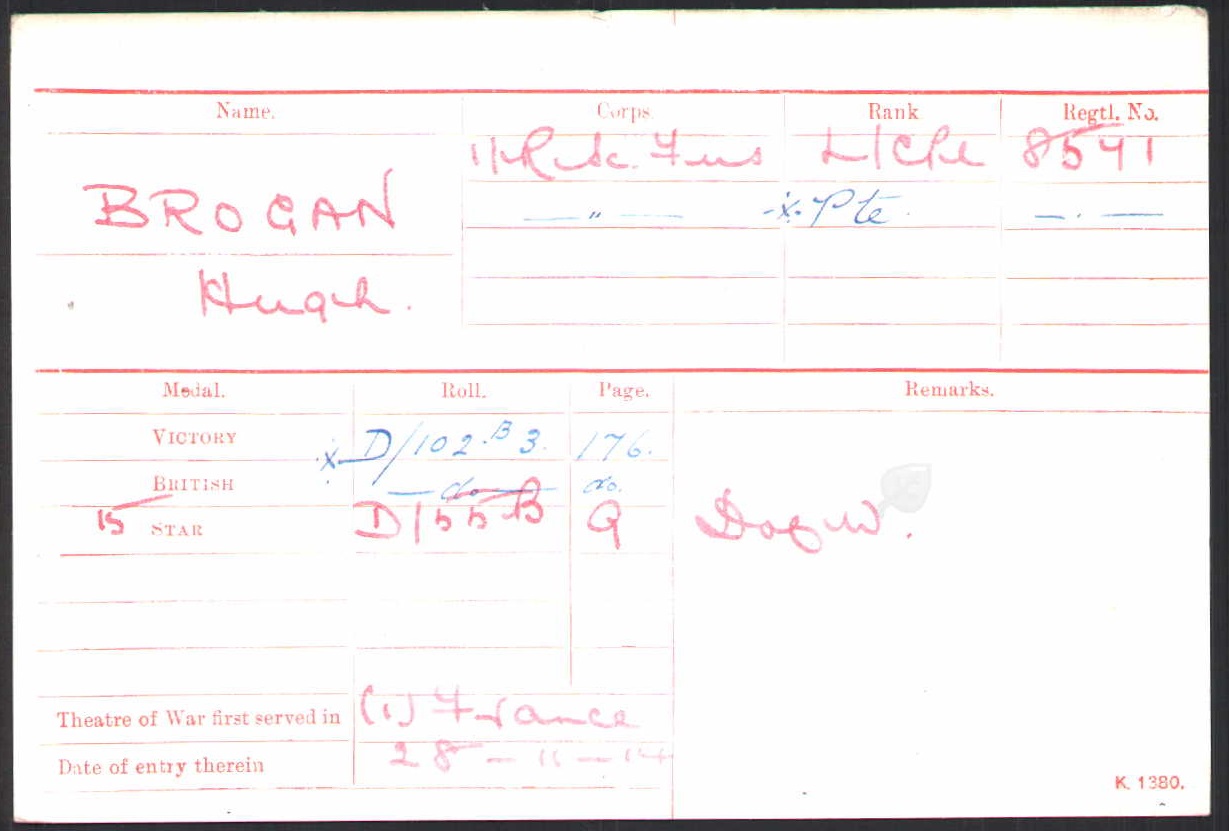 Name. Corps. Rank Regtl. No.
BROGAN
Hugh.
1/R. Sc. Fus L/Cpl 8541
— " — ·x· Pte. — . —
Medal. Roll. Page. Remarks.
VICTORY ·x· D/102.B3. 176.
BRITISH — do — do.
15 STAR D/1 B 9 D of W.
Theatre of War first served in (1) France
Date of entry therein 28 – 11 – 14
K. 1380.